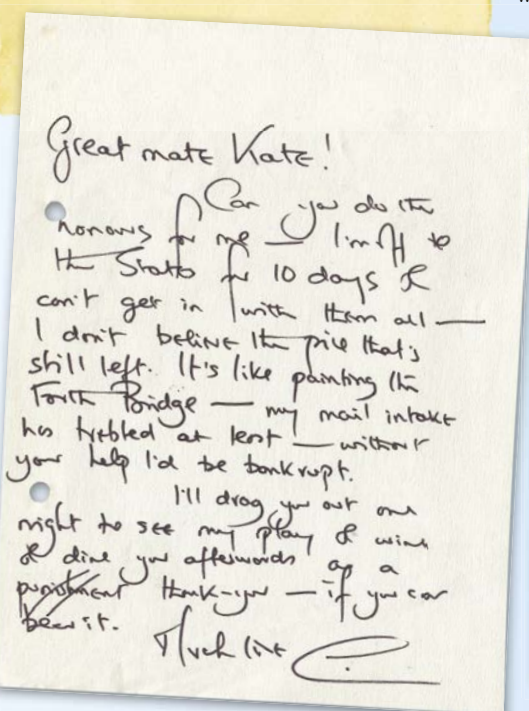 Great mate Kate!
Can you do the
honours for me — I'm off to
the States for 10 days &
can't get in with them all —
I don't believe the pile that's
still left. It's like painting the
Forth Bridge — my mail intake
has trebled at least — without
your help I'd be bankrupt.
I'll drag you out one
night to see my play & wine
& dine you afterwards as a
punishment thank-you — if you can
bear it.
Much